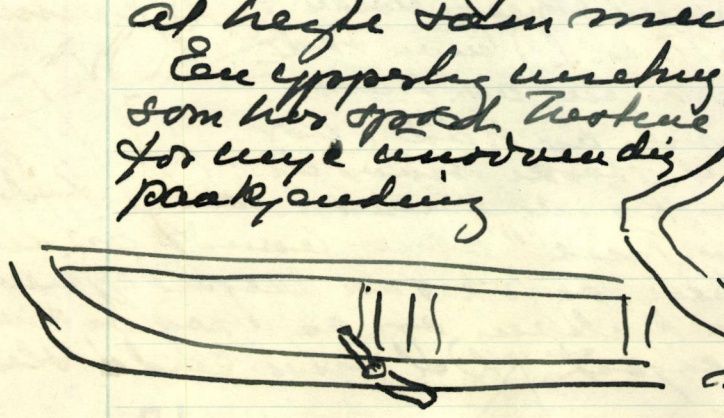 al hegte som men
En ypperlig innretning
som har spart hestene
for mye unödvendig
paakjending